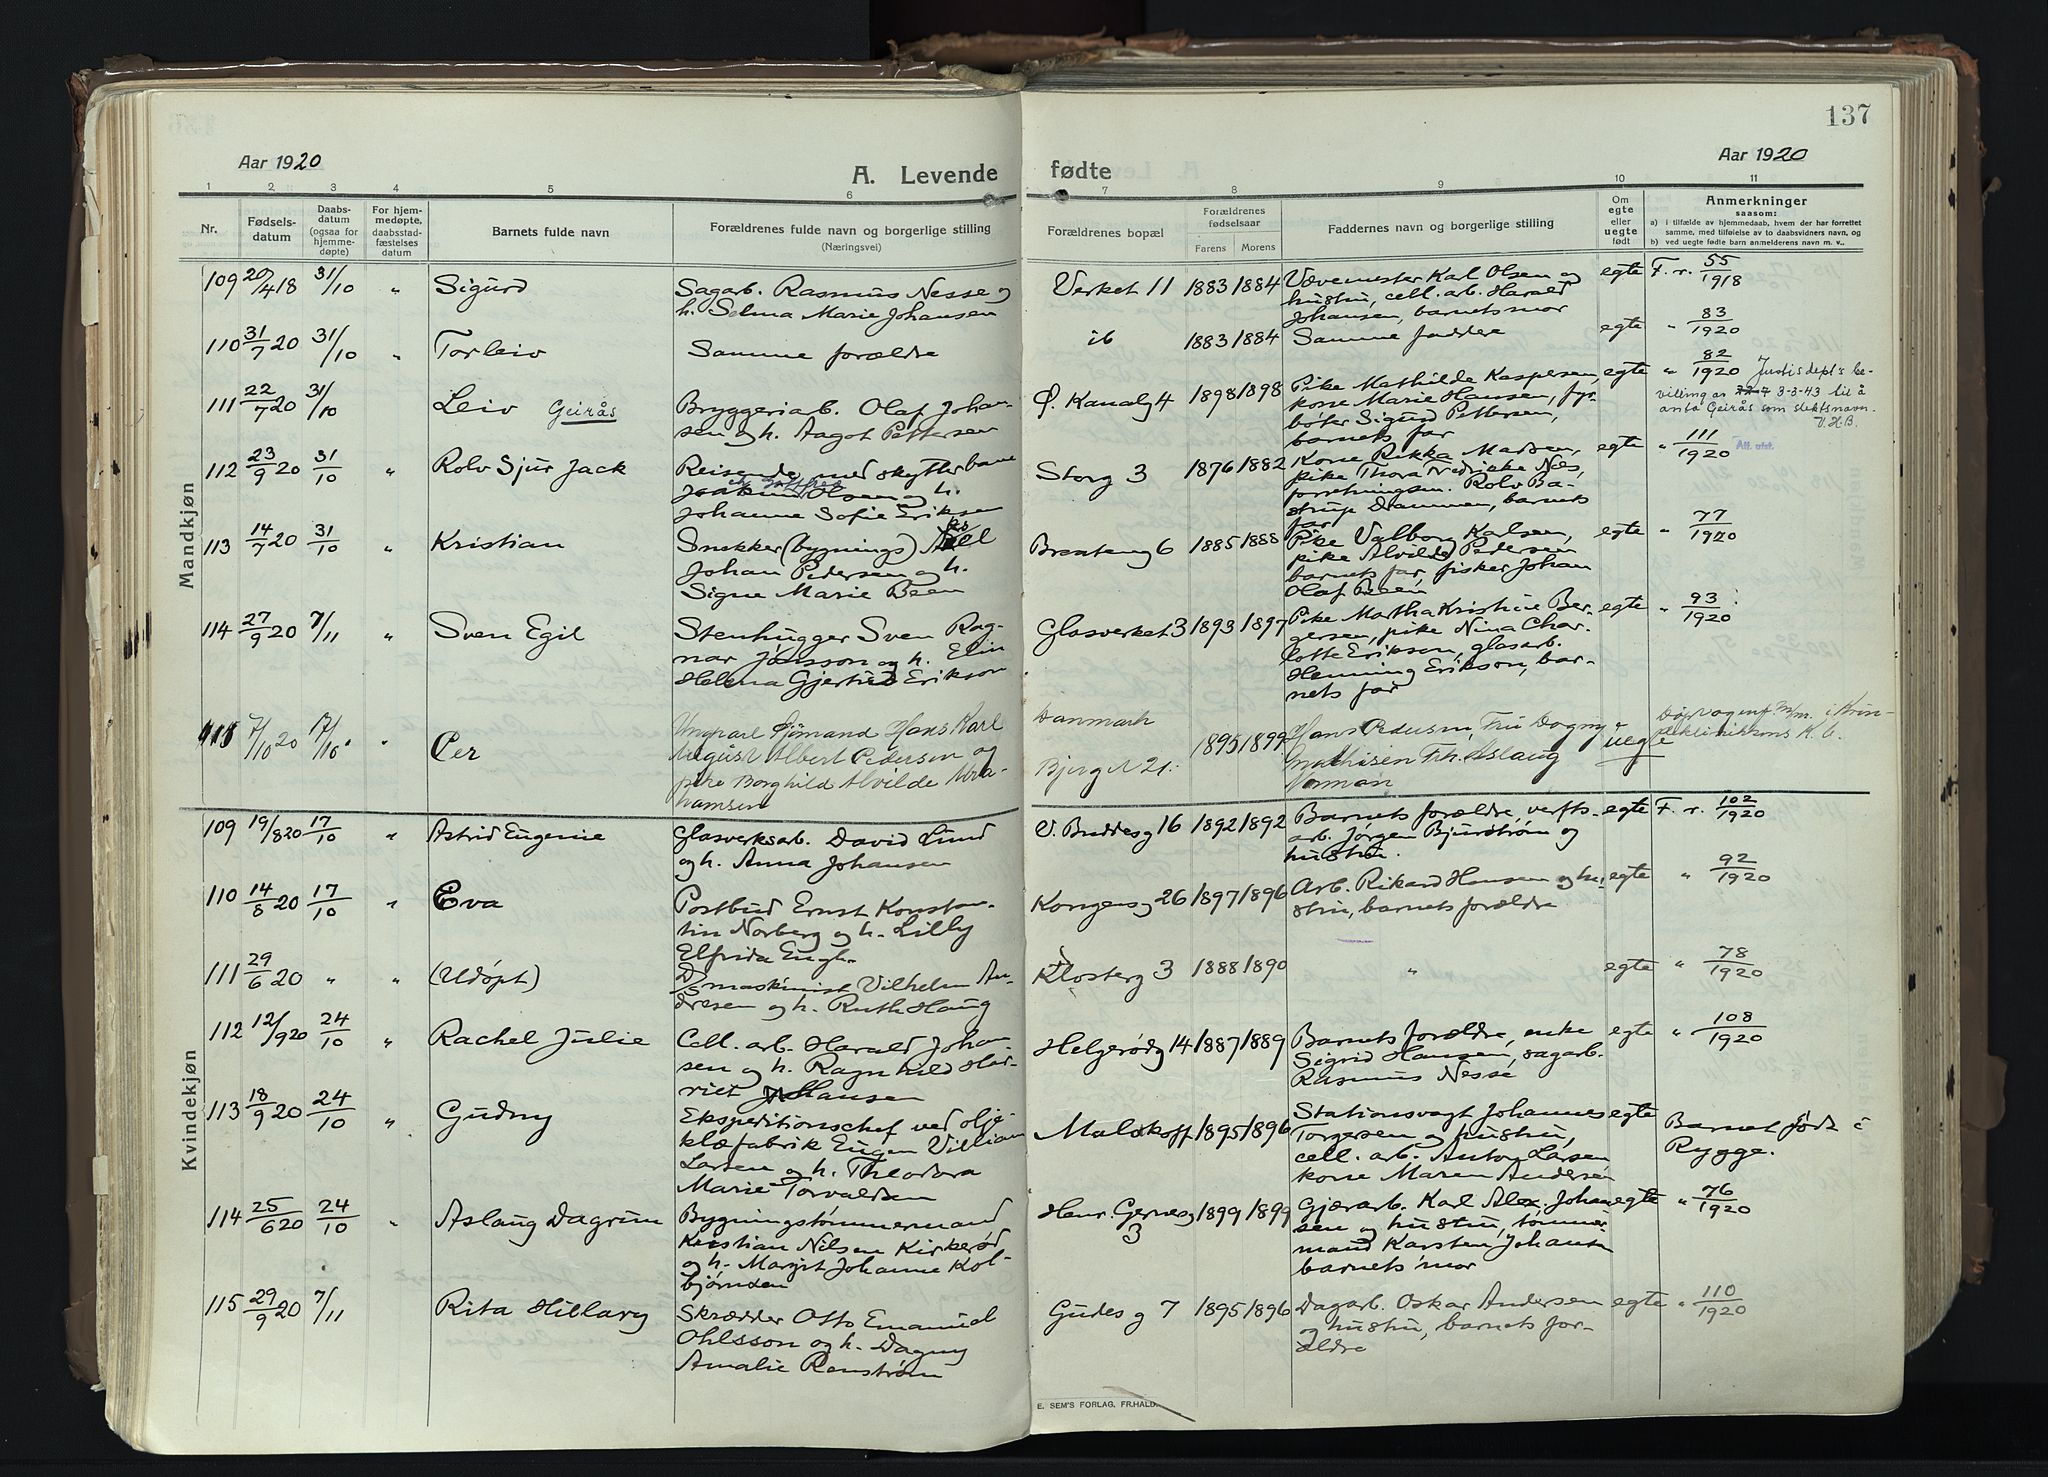 137
Aar 1920
A. Levende
fødte
Aar 1920
1 2 3 4 5 6 7 8 9 10 11
Nr.
Fødsels-
datum
Daabs-
datum
(ogsaa for
hjemme-
døpte)
For hjem-
medøpte,
daabsstad-
fæstelses
datum
Barnets fulde navn
Forældrenes fulde navn og borgerlige stilling
(Næringsvei)
Forældrenes bopæl
Forældrenes
fødselsaar
Farens Morens
Faddernes navn og borgerlige stilling
Om
egte
eller
uegte
født
Anmerkninger
saasom:
a) i tilfælde av hjemmedaab, hvem der har forrettet
samme, med tilføielse av to daabsvidners navn, og
b) ved uegte fødte barn anmelderens navn m. v.,
Mandkjøn
109 20/4 18 31/10 " Sigurd
Sagarb. Rasmus Nesse og
h. Selma Marie Johansen
Verket 11 1883 1884
Vævemester Karl Olsen og
hustru, cell. arb. Harald
Johansen, barnets mor
egte F. r. 55/1918
110 31/7 20 31/10 " Torleiv
Samme forældre
ib 1883 1884
Samme faddere
egte " 83/1920
111 22/7 20 31/10 Leiv Geirås
Bryggeriarb. Olaf Johan-
sen og h. Aagot Pettersen
Ø. Kanalg 4 1898 1898
Pike Mathilde Kaspersen,
kone Marie Hansen, fyr-
bøter Sigurd Pettersen,
barnets far
egte " 82/1920 Justisdept's be-
villing av 3-3-43 til å
anta Geirås som slektsnavn.
V.H.B.
112 23/9 20 31/10 " Rolv Sjur Jack
Reisende med skytterbane
Joakim Olsen og h.
Johanne Sofie Eriksen
Storg 3 1876 1882
Kone Rikka Madsen,
pike Thora Nils,
forretningsm. Rolv Ba-
strup Drammen, barnets
far
egte " 111/1920 Att. utst.
113 14/7 20 31/10 " Kristian
Snekker (bygnings)
Johan Pedersen og h.
Signe Marie Been
Brenteng 6 1885 1888
Pike Valborg Karlsen,
pike Alvilde Pedersen
barnets far, fisker Johan
Olaf
egte " 77/1920
114 27/9 20 7/11 " Sven Egil
Stenhugger Sven Rag-
nar Jonsson og h. Elin
Helena Gjertrud Erikson
Glasverket 3 1893 1897
Pike Martha Kristine Ber-
gersen, pike Nina Char-
lotte Eriksen, glasarb.
Henning Erikson, bar-
nets far
egte " 93/1920
115 7/10 20 17/10 " Per
Ungkarl Sjømand Hans Karl
August Albert Pedersen og
pike Borghild Alvilde Abra-
hamsen
Danmark
Bjerget 21. 1895 1899
Hans Pedersen, Fru Dagny
Mathisen Frk. Aslaug
Norman
uegte
Kvindekjøn
109 19/8 20 17/10 " Astrid Eugenie
Glasverksarb. David Lund
og h. Anna Johansen
V. Buddesg 16 1892 1892
Barnets forældre, verfts-
arb. Jørgen Bjurstrøm og
hustru.
egte F. r. 102/1920
110 14/8 20 17/10 " Eva
Postbud Ernst Konstan-
tin Norberg og h. Lilly
Elfrida Engh.
Kongensg 26 1897 1896
Arb. Rikard Hansen og hu-
stru, barnets forældre
egte " 92/1920
111 29/6 20 " " (Udøpt)
D/s maskinist Vilhelm An-
dresen og h. Ruth Haug
Klosterg 3 1888 1890
"
egte " 78/1920
112 12/9 20 24/10 " Rachel Julie
Cell. arb. Harald Johan
sen og h. Ragnhild Har-
riet Hansen
Helgerødg 14 1887 1889
Barnets forældre, enke
Sigrid Hansen, sagarb.
Rasmus Nesse
egte " 108/1920
113 18/9 20 24/10 " Gudny
Ekspeditionschef ved olje-
klæfabrik Eugen Villiam
Larsen og h. Theodora
Marie Torvaldsen
Malakoff 1895 1896
Stationsvagt Johannes
Torgersen og hustru,
cell. arb. Anton Larsen
kone Maren Andersen
egte Barnet født i
Rygge.
114 25/6 20 24/10 " Aslaug Dagrun
Bygningstømmermand
Kristian Nilsen Kirkerød
og h. Margit Johanne Kol-
bjørnsen
Henr. Gernersg 3 1899 1899
Gjærarb. Karl Alex. Johan
sen og hustru, tømmer-
mand Karsten Johansen
barnets mor
egte " 76/1920
115 29/9 20 7/11 Rita Hillary
Skrædder Otto Emanuel
Ohlsson og h. Dagny
Amalie Renstrøm
Gudesg 7 1895 1896
Dagarb. Oskar Andersen
og hustru, barnets for-
ældre
egte " 110/1920
E. SEM'S FORLAG, FR.HALD.